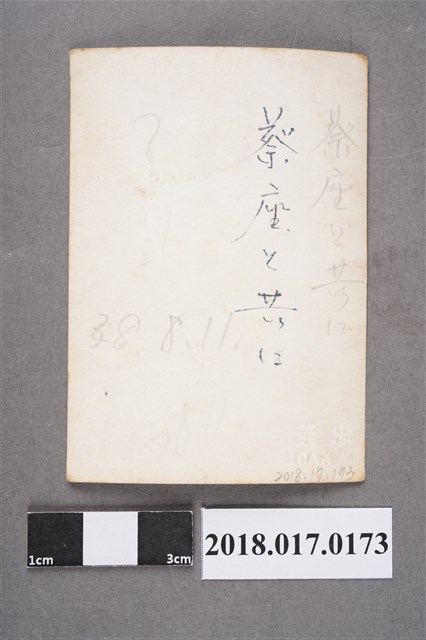 蔡座と共に
蔡座と共に
38.8.11.
2018.17.173
1cm
3cm
2018.017.0173